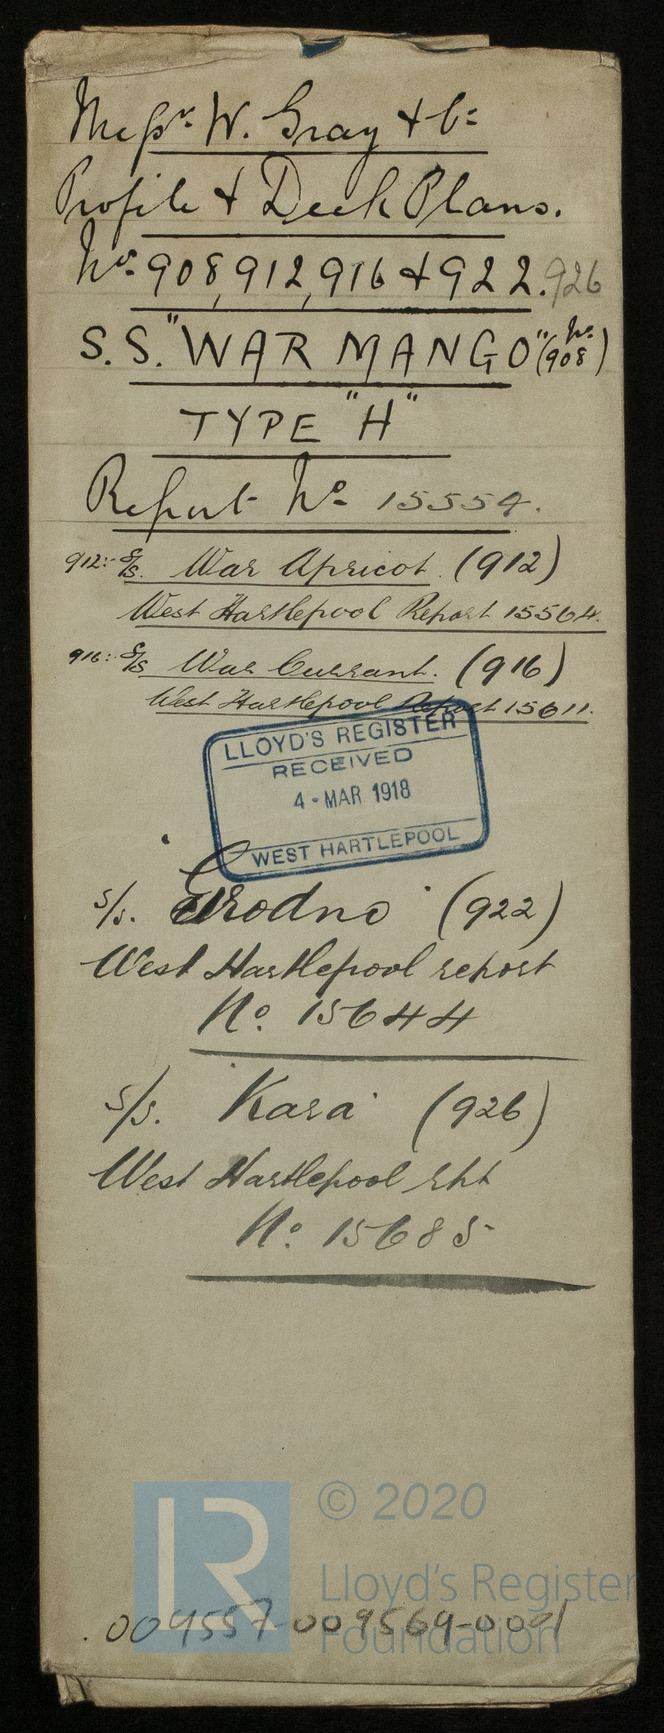 Messrs W. Gray & Co
Profile & Deck Plans.
Nos. 908, 912, 916 & 922. 926
S.S. "WAR MANGO" (No. 908)
TYPE "H"
Report No 15554.
912:- S/S. War Apricot. (912)
West Hartlepool Report 15564.
916:- S/S War Currant. (916)
West Hartlepool Report 15611.
LLOYD'S REGISTER
RECEIVED
4 - MAR 1918
WEST HARTLEPOOL
s/s. "Grodno" (922)
West Hartlepool report
No. 15644
s/s. "Kara" (926)
West Hartlepool rpt
No. 15685
© 2020
LR
Lloyd's Register
Foundation
.009557-009564-0091